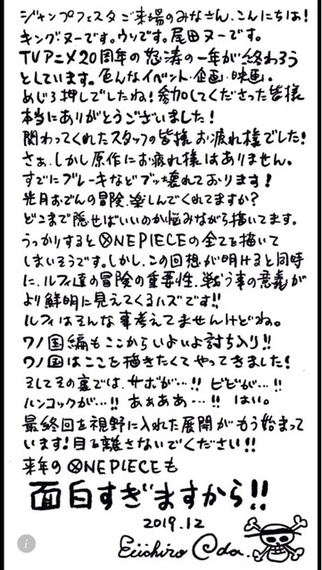 ジャンプフェスタご来場のみなさん、こんにちは!
キングヌーです。ウソです。尾田ヌーです。
TVアニメ20周年の怒涛の一年が終わろう
としています。色んなイベント・企画・映画。
めじろ押しでしたね!参加してくださった皆様
本当にありがとうございました!
関わってくれたスタッフの皆様お疲れ様でした!
さぁ、しかし原作にお疲れ様はありません。
すでにブレーキなどブッ壊れております!
光月おでんの冒険、楽しんでくれてますか?
どこまで隠せばいいのか悩みながら描いてます。
うっかりするとONE PIECEの全てを描いて
しまいそうです。しかし、この回想が明けると同時
に、ルフィ達の冒険の重要性、戦う事の意義が
より鮮明に見えてくるハズです!!
ルフィはそんな事考えてませんけどね。
ワノ国編もここからいよいよ討ち入り!!
ワノ国はここを描きたくてやってきました!
そしてその裏では、サボが…!!ビビが…!!
ハンコックが…!!あぁぁぁ…!!はい。
最終回を視野に入れた展開がもう始まって
います!目を離さないでください!!
来年のONE PIECEも
面白すぎますから!!
2019.12
Eiichiro Oda.